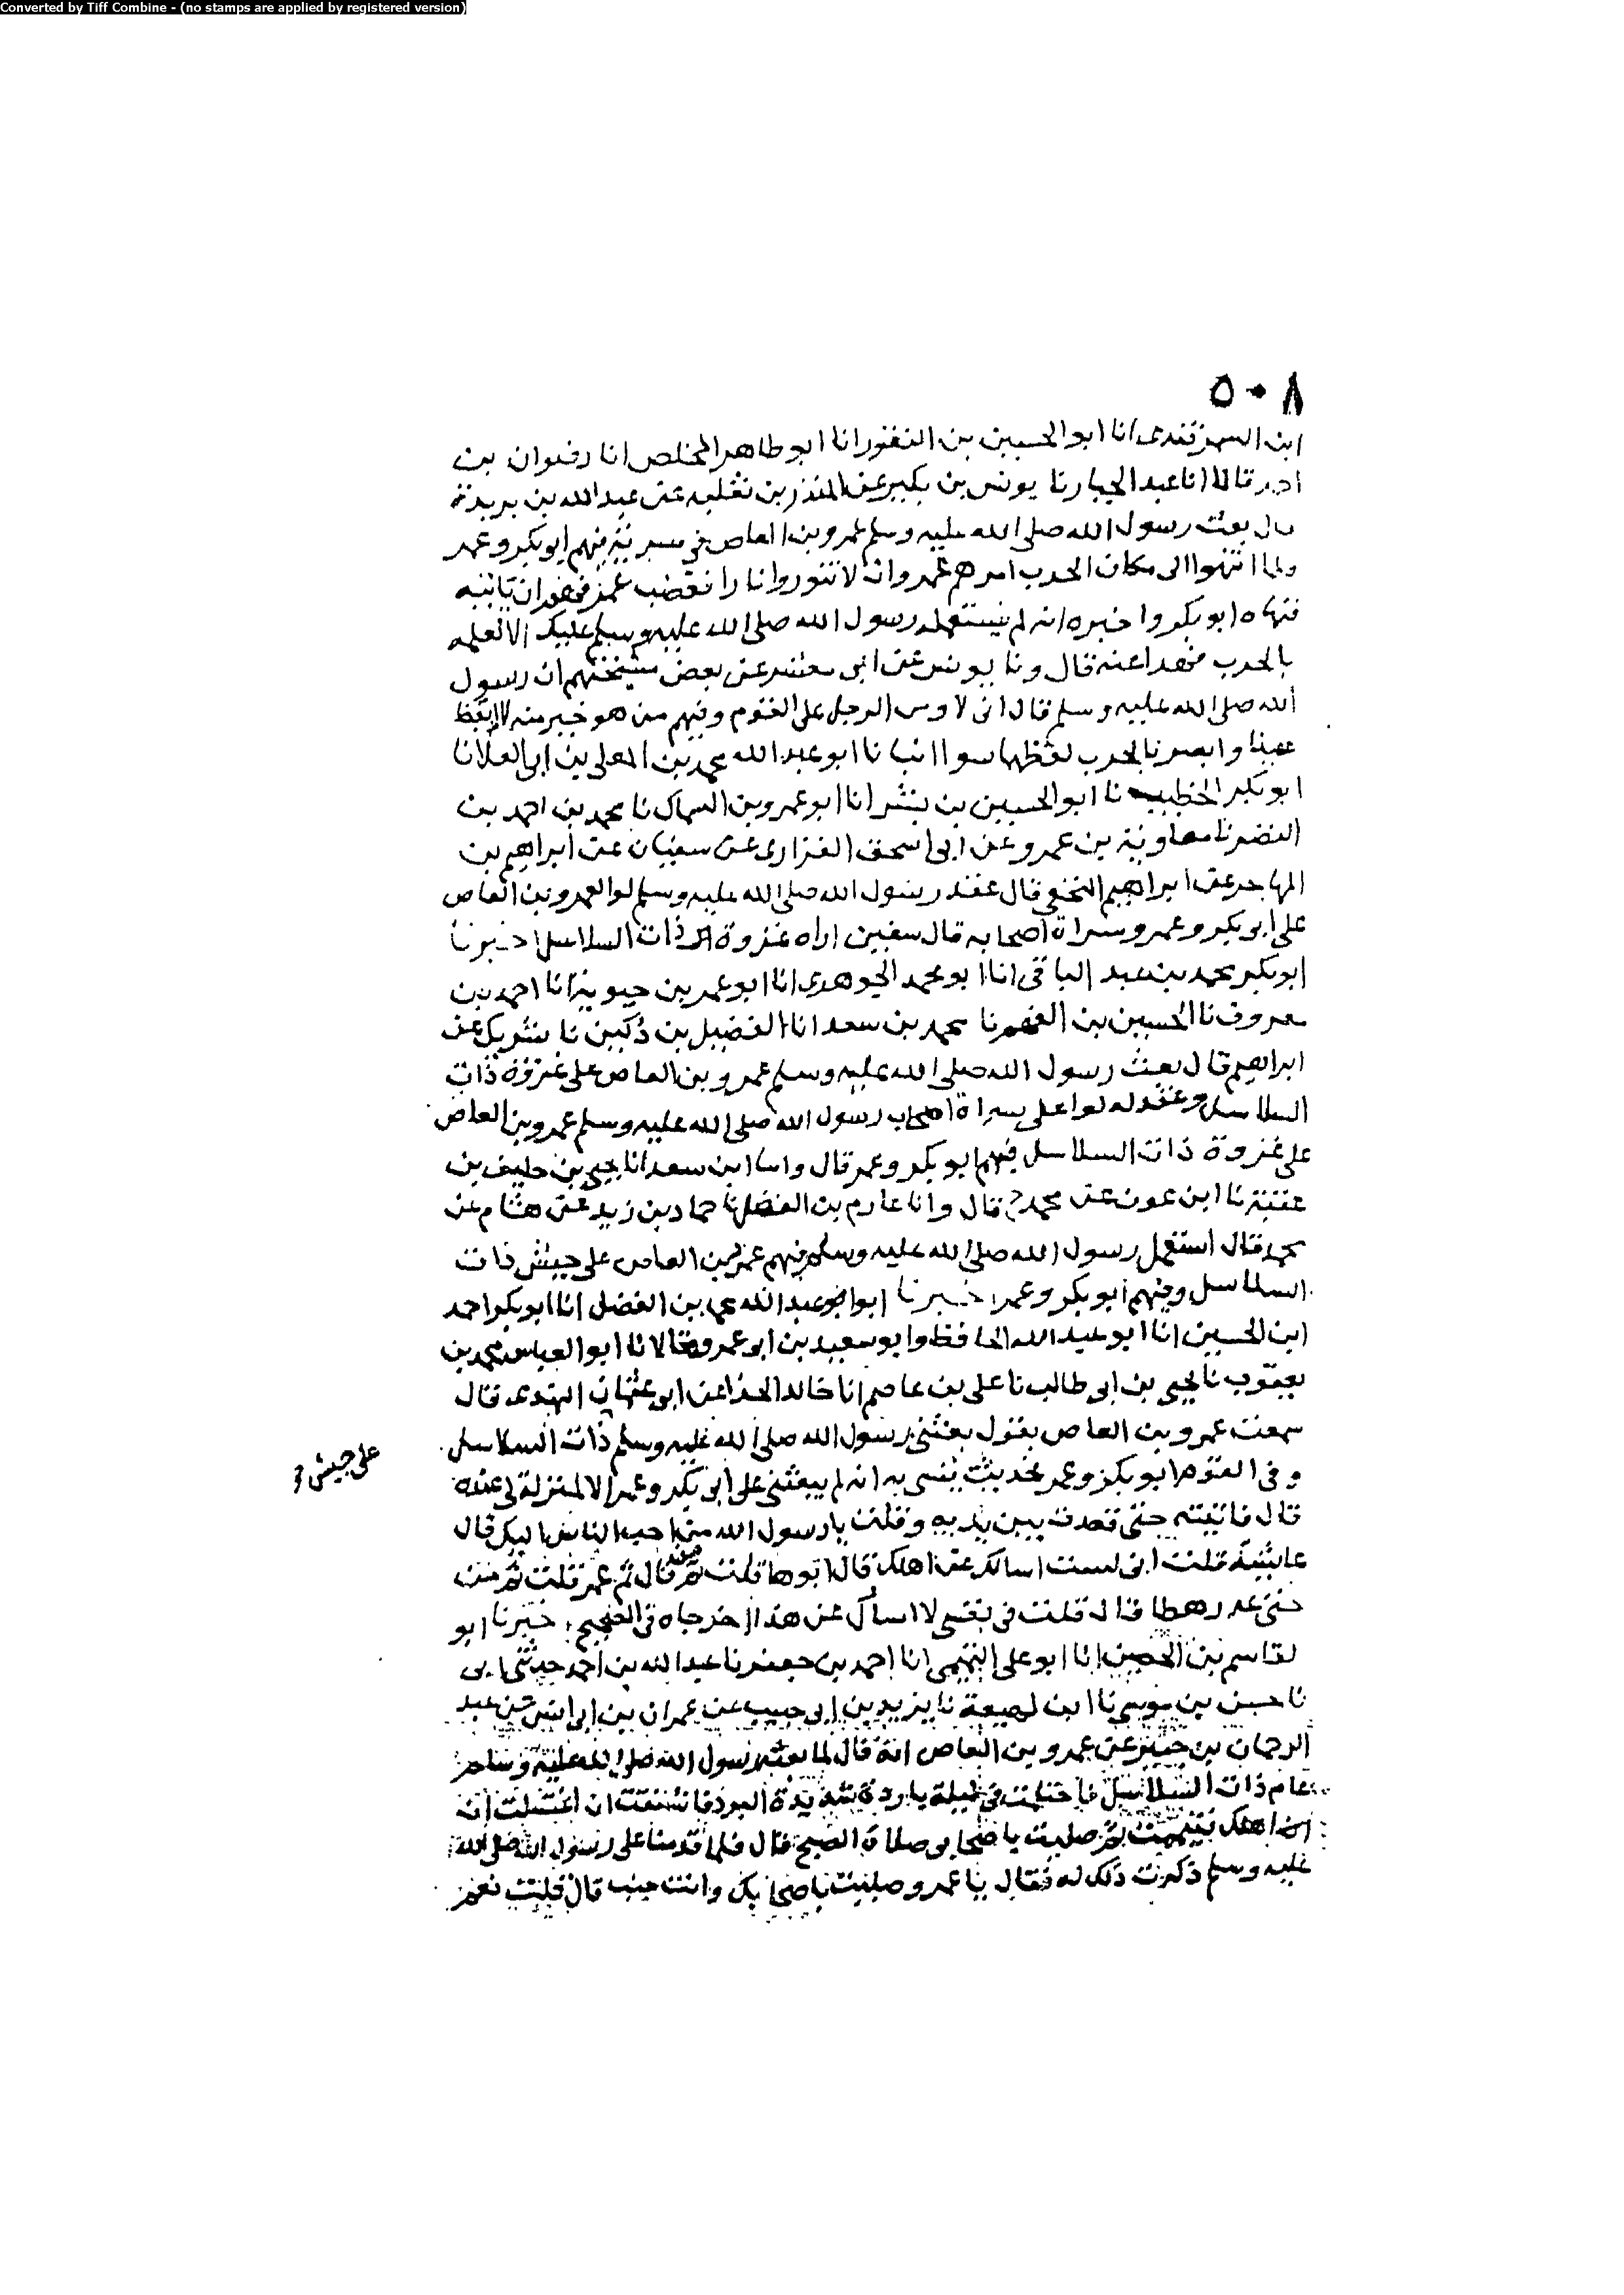 Converted by Tiff Combine - (no stamps are applied by registered version)
٥٠٨
ابن السمرقندى انا ابو الحسين بن النقور انا ابو طاهر المخلص انا رضوان بن
احمد قالا انا عبد الجبار نا يونس بن بكير عن المنذر بن ثعلبه عن عبد الله بن بريدة
قال بعث رسول الله صلى الله عليه وسلم عمرو بن العاص في سرية فيهم ابو بكر وعمر
ولما انتهوا الى مكان الحرب امرهم عمرو ان لا تنوروا نارا فغضب عمر فهم ان ياتيه
فنهاه ابو بكر واخبره انه لم يستعمله رسول الله صلى الله عليه وسلم عليك الا لعلمه
بالحرب فهدا عنه قال ونا يونس عن ابى معشر عن بعض مشيختهم ان رسول
الله صلى الله عليه وسلم قال انى لاومر الرجل على القوم وفيهم من هو خير منه لانه ايقظ
عينا وابصر بالحرب لفظهما سوا انبانا ابو عبد الله محمد بن العلى بن ابى العلا نا
ابو بكر الخطيب نا ابو الحسين بن بشر انا ابو عمرو بن السماك نا محمد بن احمد بن
النضر نا معاوية بن عمرو عن ابى اسحق الفزارى عن سفيان عن ابراهيم بن
المهاجر عن ابراهيم النخعي قال عقد رسول الله صلى الله عليه وسلم لوا لعمرو بن العاص
على ابو بكر وعمر وسراة اصحابه قال سفين اراه غزوة ذات السلاسل اخبرنا
ابو بكر محمد بن عبد الباقى انا ابو محمد الجوهرى انا ابو عمر بن حيوية انا احمد بن
معروف نا الحسين بن الفهم نا محمد بن سعد انا الفضيل بن دكين نا شريك عن
ابراهيم قال بعث رسول الله صلى الله عليه وسلم عمرو بن العاص على غزوة ذات
السلاسل وعقد له لوا على سراة اصحاب رسول الله صلى الله عليه وسلم عمرو بن العاص
على غزوة ذات السلاسل فيهم ابو بكر وعمر قال وانا ابن سعد انا يحيى بن خليف بن
عقبة نا ابن عون عن محمد ح قال وانا عارم بن الفضل نا حماد بن زيد عن هشام عن
محمد قال استعمل رسول الله صلى الله عليه وسلم فيهم عمرو بن العاص على جيش ذات
السلاسل وفيهم ابو بكر وعمر اخبرنا ابو عبد الله بن الفضل انا ابو بكر احمد
ابن الحسين انا ابو عبد الله الحافظ وابو سعيد بن ابو عمرو قالا نا ابو العباس محمد بن
يعقوب نا يحيى بن ابى طالب نا على بن عاصم انا خالد الحذا عن ابو عثمان النهدى قال
سمعت عمرو بن العاص يقول بعثنى رسول الله صلى الله عليه وسلم ذات السلاسل
على جيش
وفى القوم ابو بكر وعمر فحديث نفسى به انه لم يبعثنى على ابو بكر وعمر الا لمنزلة لى عنده
قال فاتيته حتى قعدت بين يديه وقلت يا رسول الله من احب الناس اليك قال
عايشة قلت انى لست اسالك عن اهلك قال ابوها قلت ثم من قال ثم عمر قلت ثم من
حتى عد رهطا قال قلت فى نفسى لا اسأل عن هذا اخرجاه فى الصحيح اخبرنا ابو
لقاسم بن الحصين انا ابو على التميمى انا احمد بن جعفر نا عبد الله بن احمد حدثنى ابى
نا حسن بن موسى نا ابن لهيعة نا يزيد بن ابى حبيب عن عمران بن ابى انس عن عبد
الرحمان بن جبير عن عمرو بن العاص انه قال لما بعثه رسول الله صلى الله عليه وسلم
عام ذات السلاسل فاحتلمت فى ليلة باردة شديدة البرد فاشفقت ان اغتسلت ان
اهلك فتيممت ثم صليت باصحابى صلاة الصبح قال فلما قدمنا على رسول الله صلى الله
عليه وسلم ذكرت ذلك له فقال يا عمرو صليت باصحابك وانت جنب قال قلت نعم